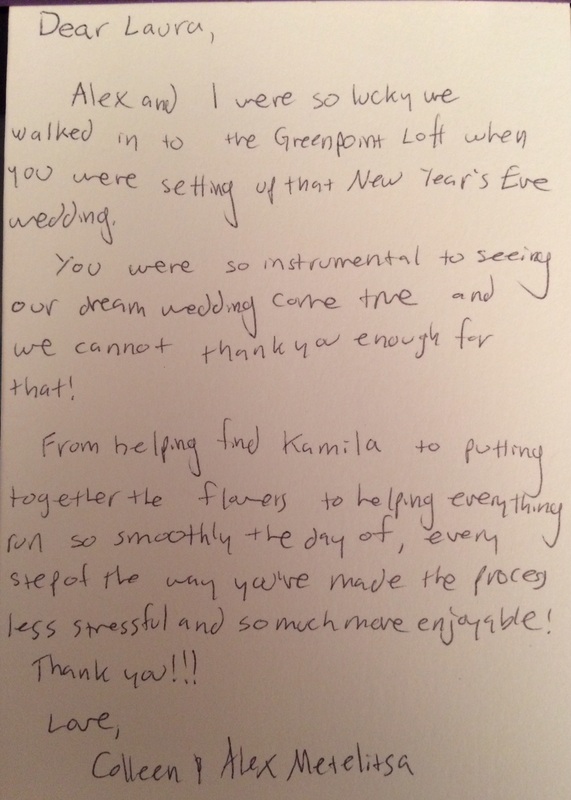 Dear Laura,
Alex and I were so lucky we
walked in to the Greenpoint Loft when
you were setting up that New Year's Eve
wedding.
You were so instrumental to seeing
our dream wedding come true and
we cannot thank you enough for
that!
From helping find Kamila to putting
together the flowers to helping everything
run so smoothly the day of, every
step of the way you've made the process
less stressful and so much more enjoyable!
Thank you!!!
Love,
Colleen & Alex Metelitsa